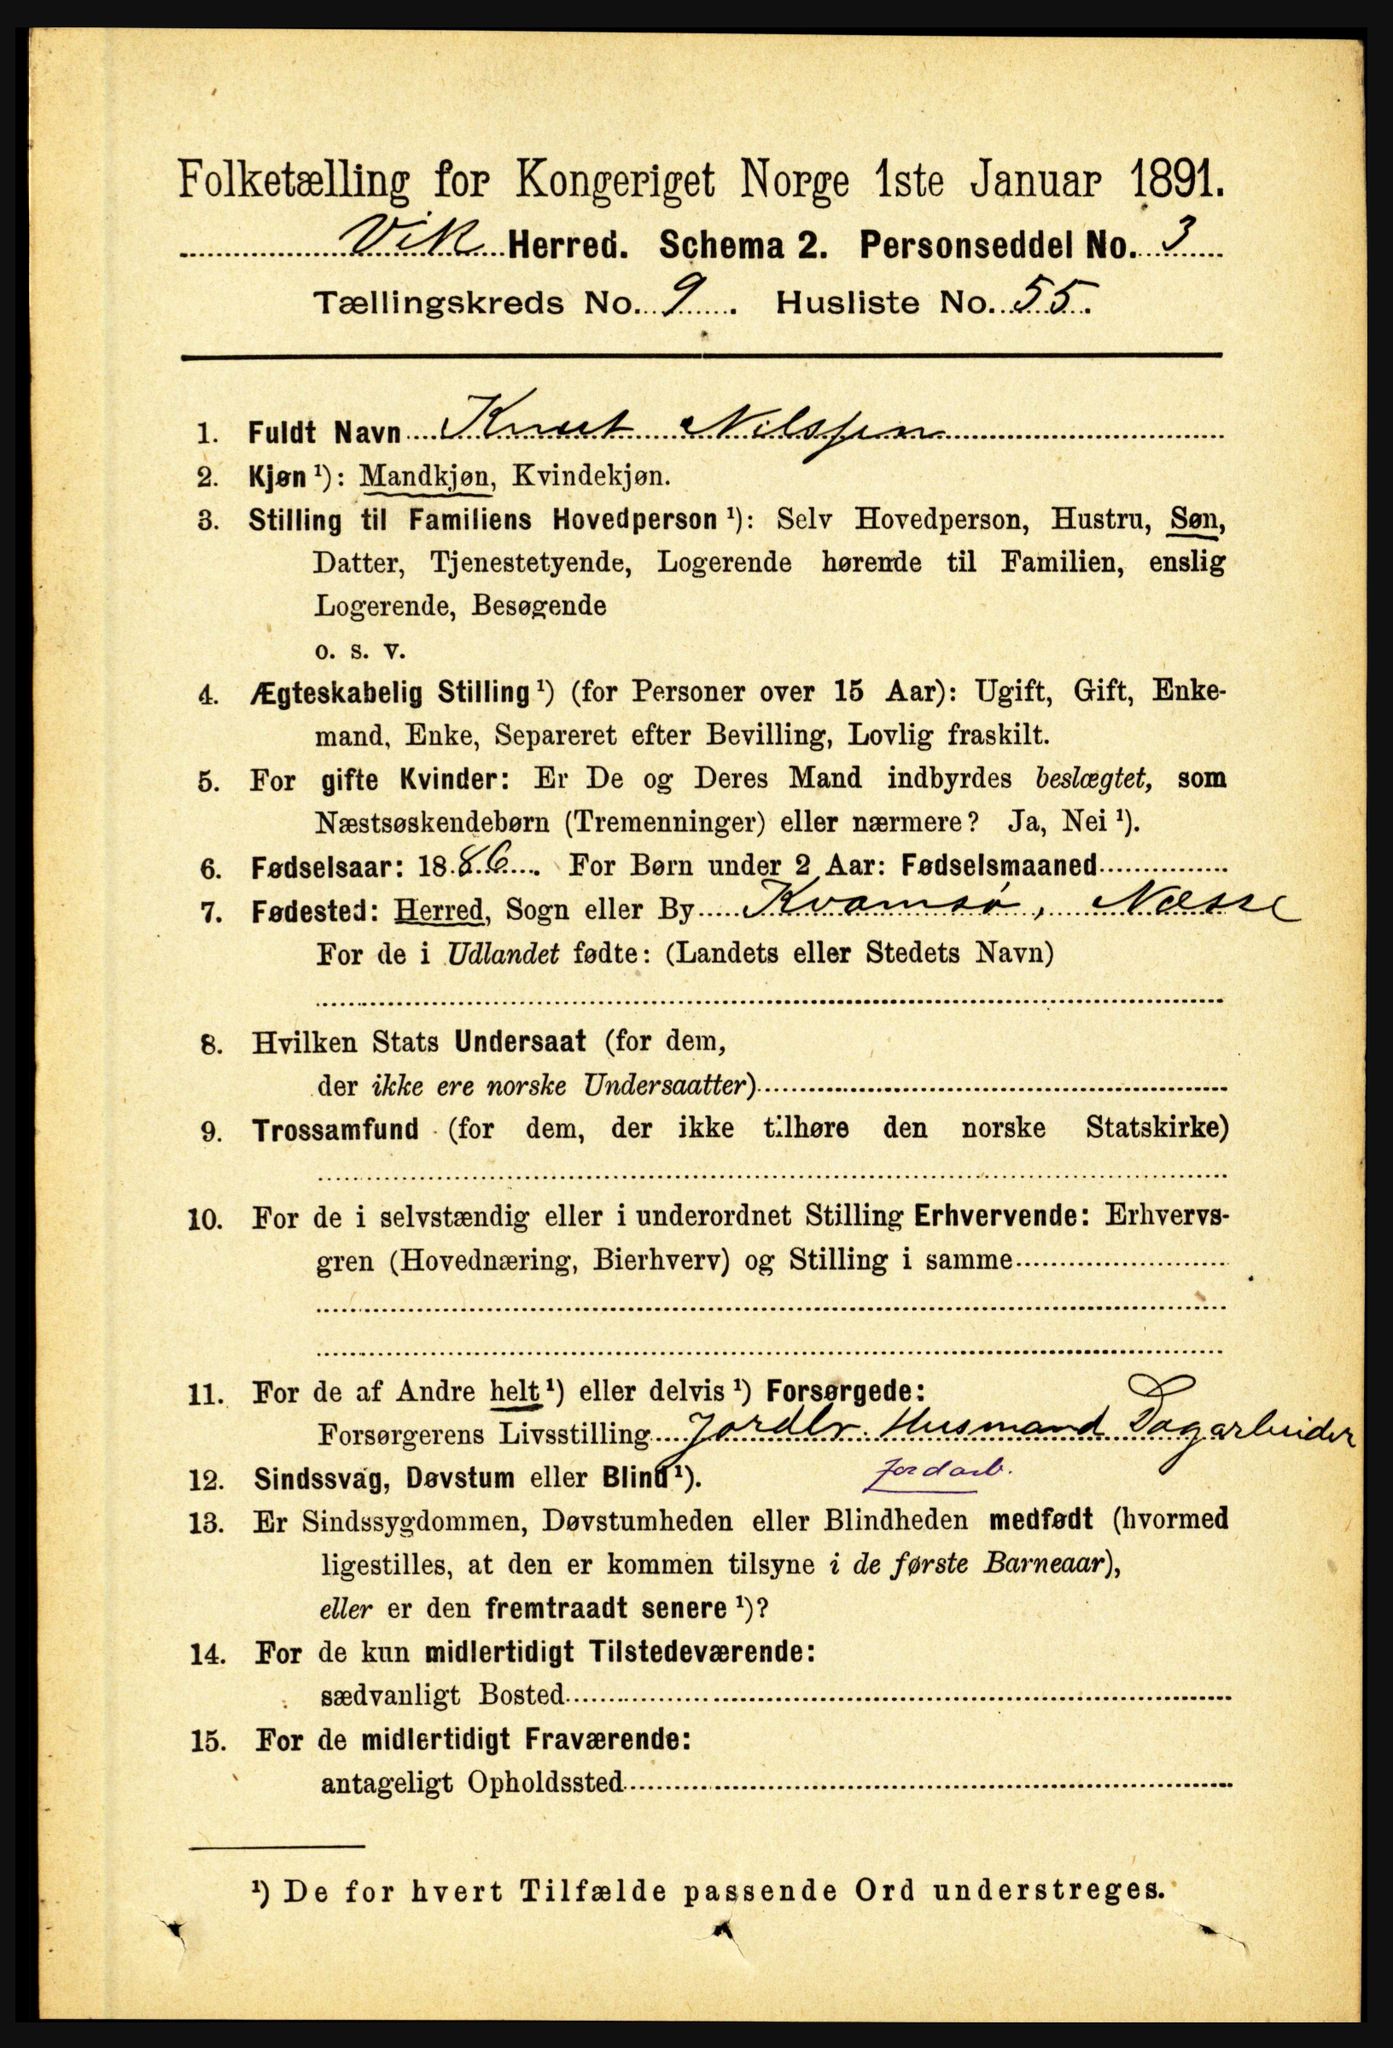 Folketælling for Kongeriget Norge 1ste Januar 1891.
Vik Herred. Schema 2. Personseddel No. 3
Tællingskreds No. 9. Husliste No. 55.
1. Fuldt Navn Knut Nilssen
2. Kjøn ¹): Mandkjøn, Kvindekjøn.
3. Stilling til Familiens Hovedperson ¹): Selv Hovedperson, Hustru, Søn,
Datter, Tjenestetyende, Logerende hørende til Familien, enslig
Logerende, Besøgende
o. s. v.
4. Ægteskabelig Stilling ¹) (for Personer over 15 Aar): Ugift, Gift, Enke-
mand, Enke, Separeret efter Bevilling, Lovlig fraskilt.
5. For gifte Kvinder: Er De og Deres Mand indbyrdes beslægtet, som
Næstsøskendebørn (Tremenninger) eller nærmere? Ja, Nei ¹).
6. Fødselsaar: 1886. For Børn under 2 Aar: Fødselsmaaned
7. Fødested: Herred, Sogn eller By Kvamsø, Næsse
For de i Udlandet fødte: (Landets eller Stedets Navn)
8. Hvilken Stats Undersaat (for dem,
der ikke ere norske Undersaatter)
9. Trossamfund (for dem, der ikke tilhøre den norske Statskirke)
10. For de i selvstændig eller i underordnet Stilling Erhvervende: Erhvervs-
gren (Hovednæring, Bierhverv) og Stilling i samme
11. For de af Andre helt ¹) eller delvis ¹) Forsørgede:
Forsørgerens Livsstilling Jordbr. Husmand Dagarbeider
12. Sindssvag, Døvstum eller Blind ¹). jordarb.
13. Er Sindssygdommen, Døvstumheden eller Blindheden medfødt (hvormed
ligestilles, at den er kommen tilsyne i de første Barneaar),
eller er den fremtraadt senere ¹)?
14. For de kun midlertidigt Tilstedeværende:
sædvanligt Bosted
15. For de midlertidigt Fraværende:
antageligt Opholdssted
¹) De for hvert Tilfælde passende Ord understreges.